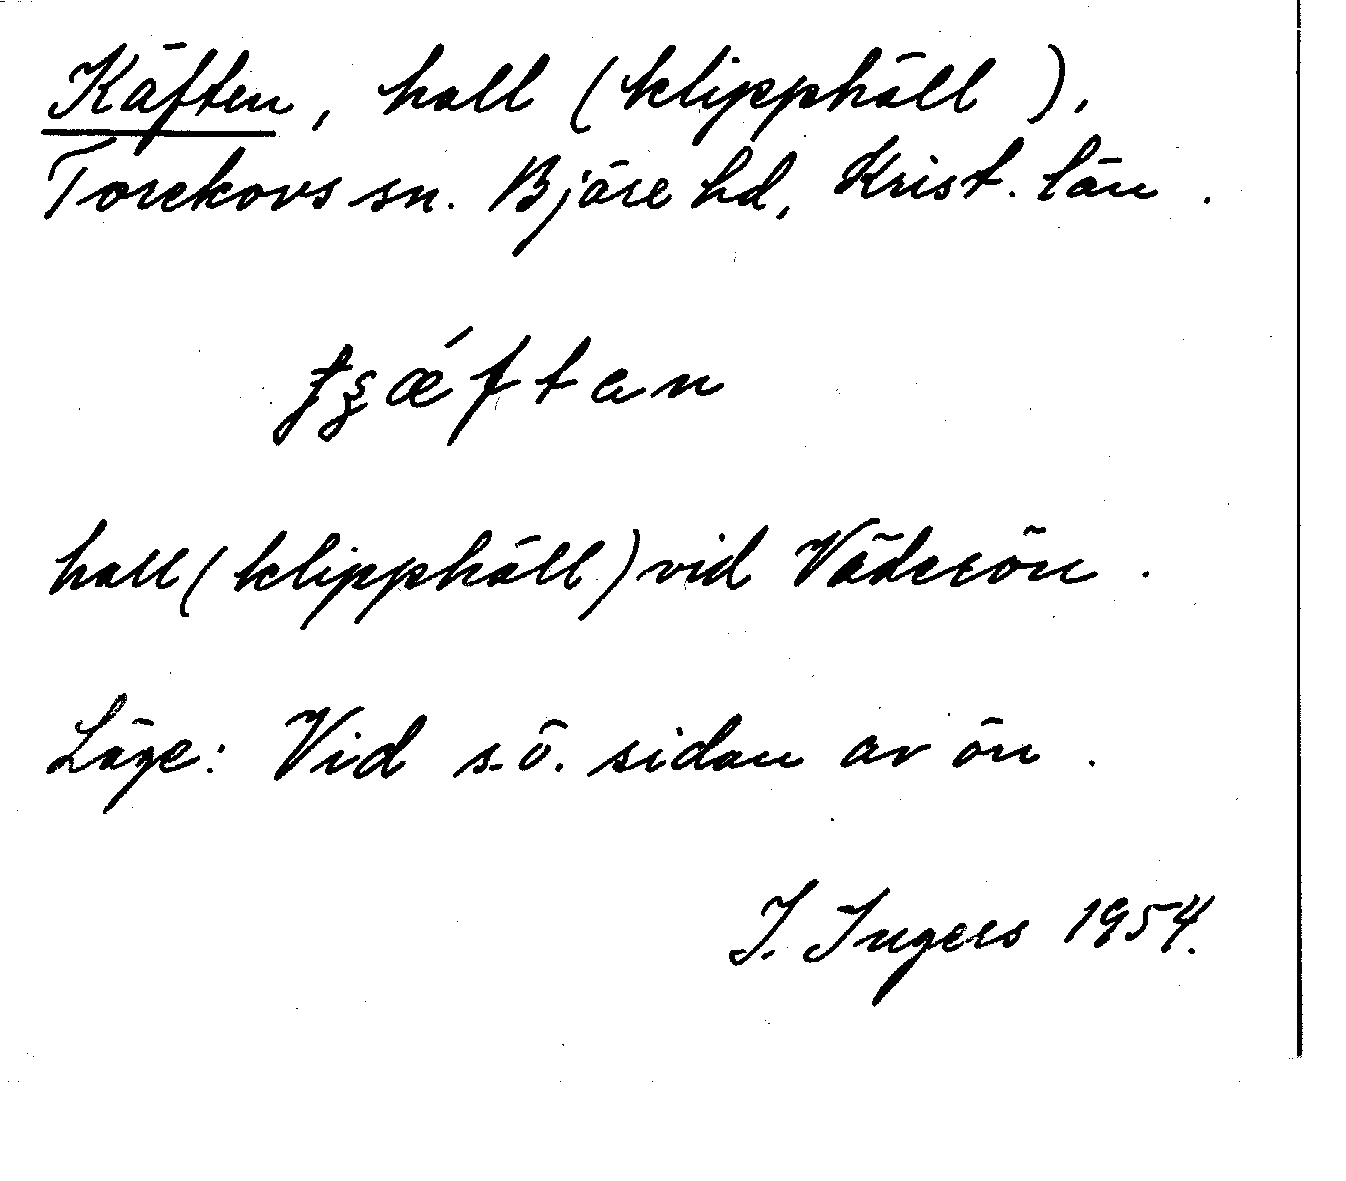 Käften, hall (klipphäll).
Torekovs sn. Bjäre hd, Krist. län.
hall (klipphäll) vid Väderön.
Läge: Vid s.ö. sidan av ön.
I. Ingers 1954.